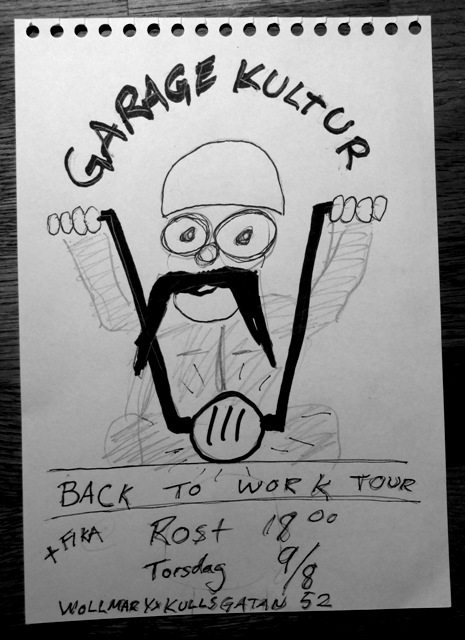 GARAGE KULTUR
BACK TO WORK TOUR
+ FIKA Rost 18 00
Torsdag 9/8
WOLLMAR YXKULLSGATAN 52